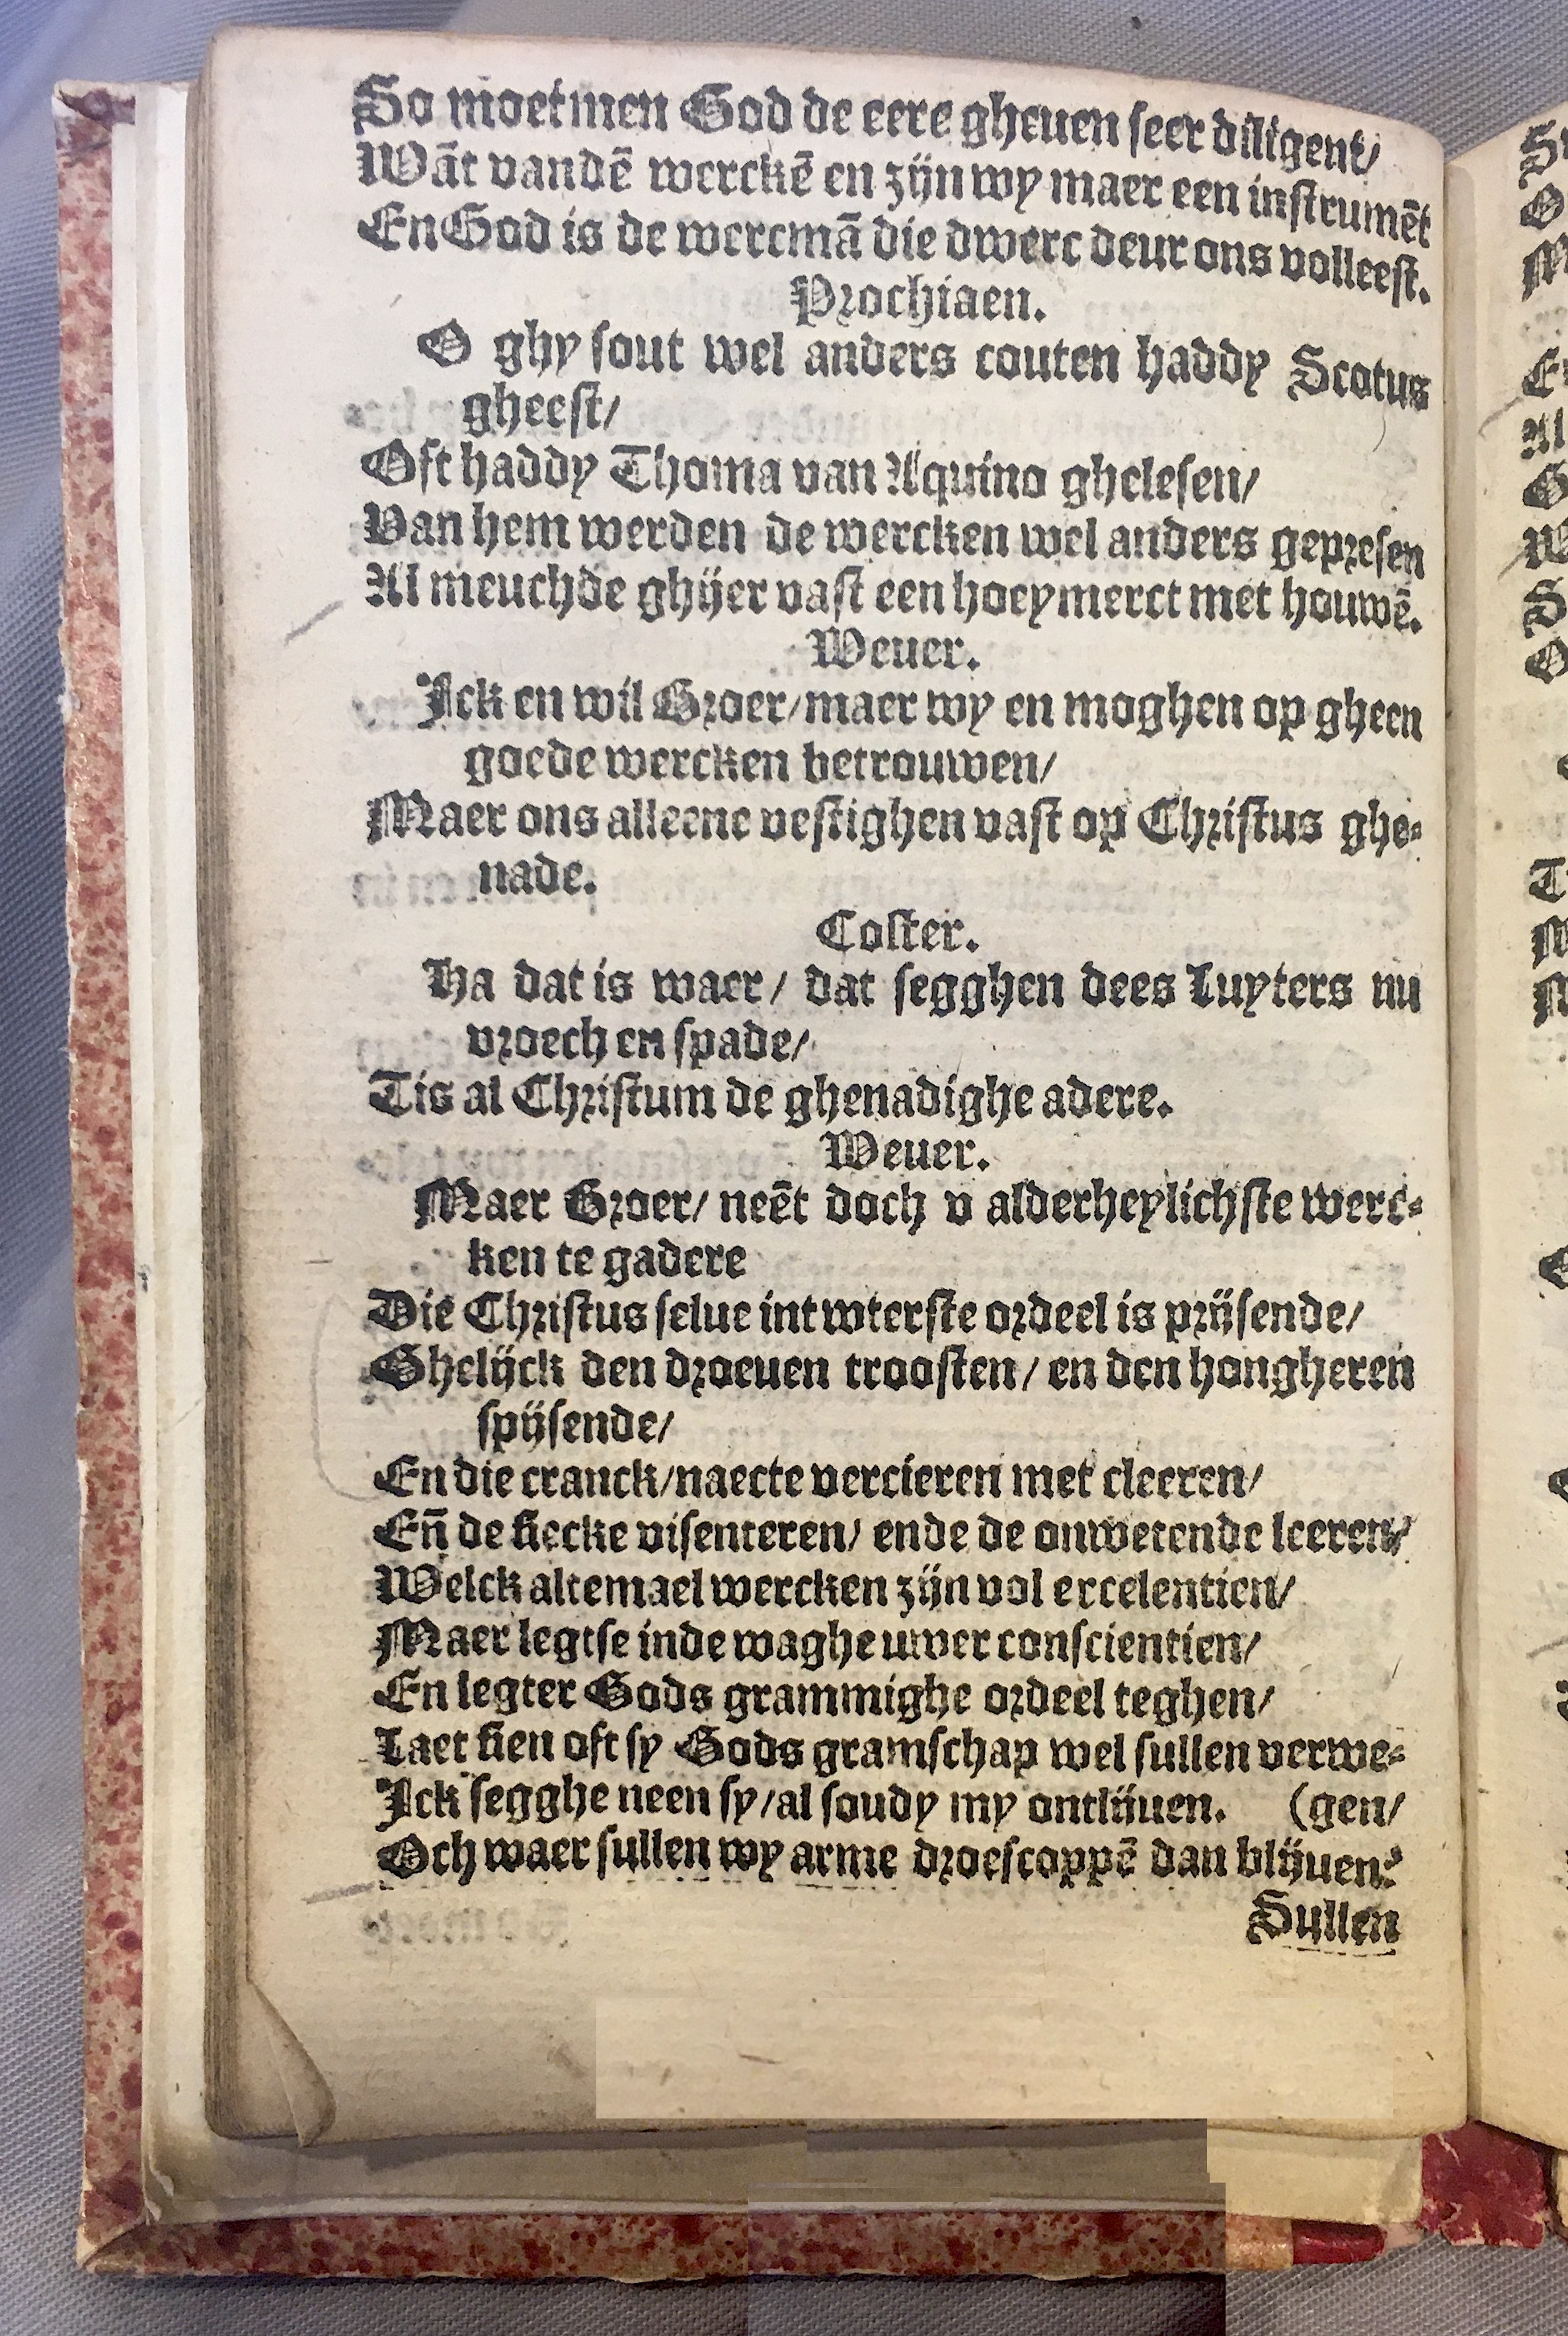 So moetmen God de eere gheuen seer diligent/
Wāt vandē werckē en zijn wy maer een instrumēt
En God is de wercmā die dwerc deur ons volleest.
Prochiaen.
O ghy sout wel anders couten haddy Scotus
gheest/
Oft haddy Thoma van Aquino ghelesen/
Van hem werden de wercken wel anders gepresen
Al meuchde ghijer vast een hoeymerct met houwē.
Weuer.
Ick en wil Broer/maer wy en moghen op gheen
goede wercken betrouwen/
Maer ons alleene vestighen vast op Christus ghe-
nade.
Coster.
Ha dat is waer/ dat segghen dees Luyters nu
vroech en spade/
Tis al Christum de ghenadighe adere.
Weuer.
Maer Broer/ neēt doch v alderheylichste werc-
ken te gadere
Die Christus selue int wterste ordeel is prijsende/
Ghelijck den droeuen troosten/ en den hongheren
spijsende/
En die cranck/naecte vercieren met cleeren/
En̄ de siecke visenteren/ ende de onwetende leeren/
Welck altemael wercken zijn vol excelentien/
Maer legtse inde waghe uwer conscientien/
En legter Gods grammighe ordeel teghen/
Laet sien oft sy Gods gramschap wel sullen verwe-
Ick segghe neen sy/al soudy my ontlijuen. (gen/
Och waer sullen wy arme droescoppē dan blijuen?
Sullen